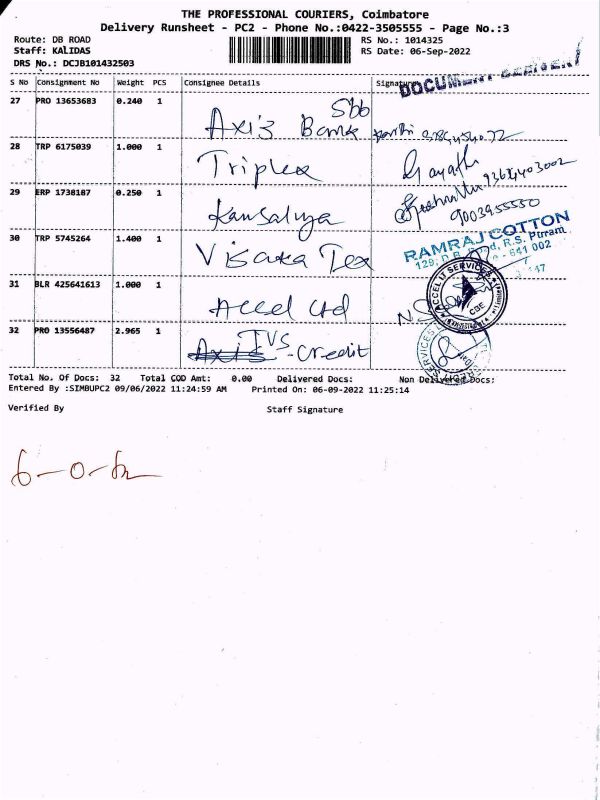 THE PROFESSIONAL COURIERS, Coimbatore
Delivery Runsheet - PC2 - Phone No.:0422-3505555 - Page No.:3
Route: DB ROAD
RS No.: 1014325
Staff: KALIDAS
RS Date: 06-Sep-2022
DRS No.: DCJB101432503
S No Consignment No Weight PCS Consignee Details Signature
DOCUMENT DELIVERY
27 PRO 13653683 0.240 1 Axis Bank Sbb
28 TRP 6175039 1.000 1 Triplex Gayathri
29 ERP 1738187 0.250 1 Kausalya
9003955550
30 TRP 5745264 1.400 1 Visaka Tex
RAMRAJ COTTON
129, D.B. Road, R.S. Puram
641 002
31 BLR 425641613 1.000 1 Accel Ltd
ACCEL IT SERVICES
CBE
32 PRO 13556487 2.965 1 Axis TVS-Credit
Total No. Of Docs: 32 Total COD Amt: 0.00 Delivered Docs: Non Delivered Docs:
Entered By :SIMBUPC2 09/06/2022 11:24:59 AM Printed On: 06-09-2022 11:25:14
Verified By Staff Signature